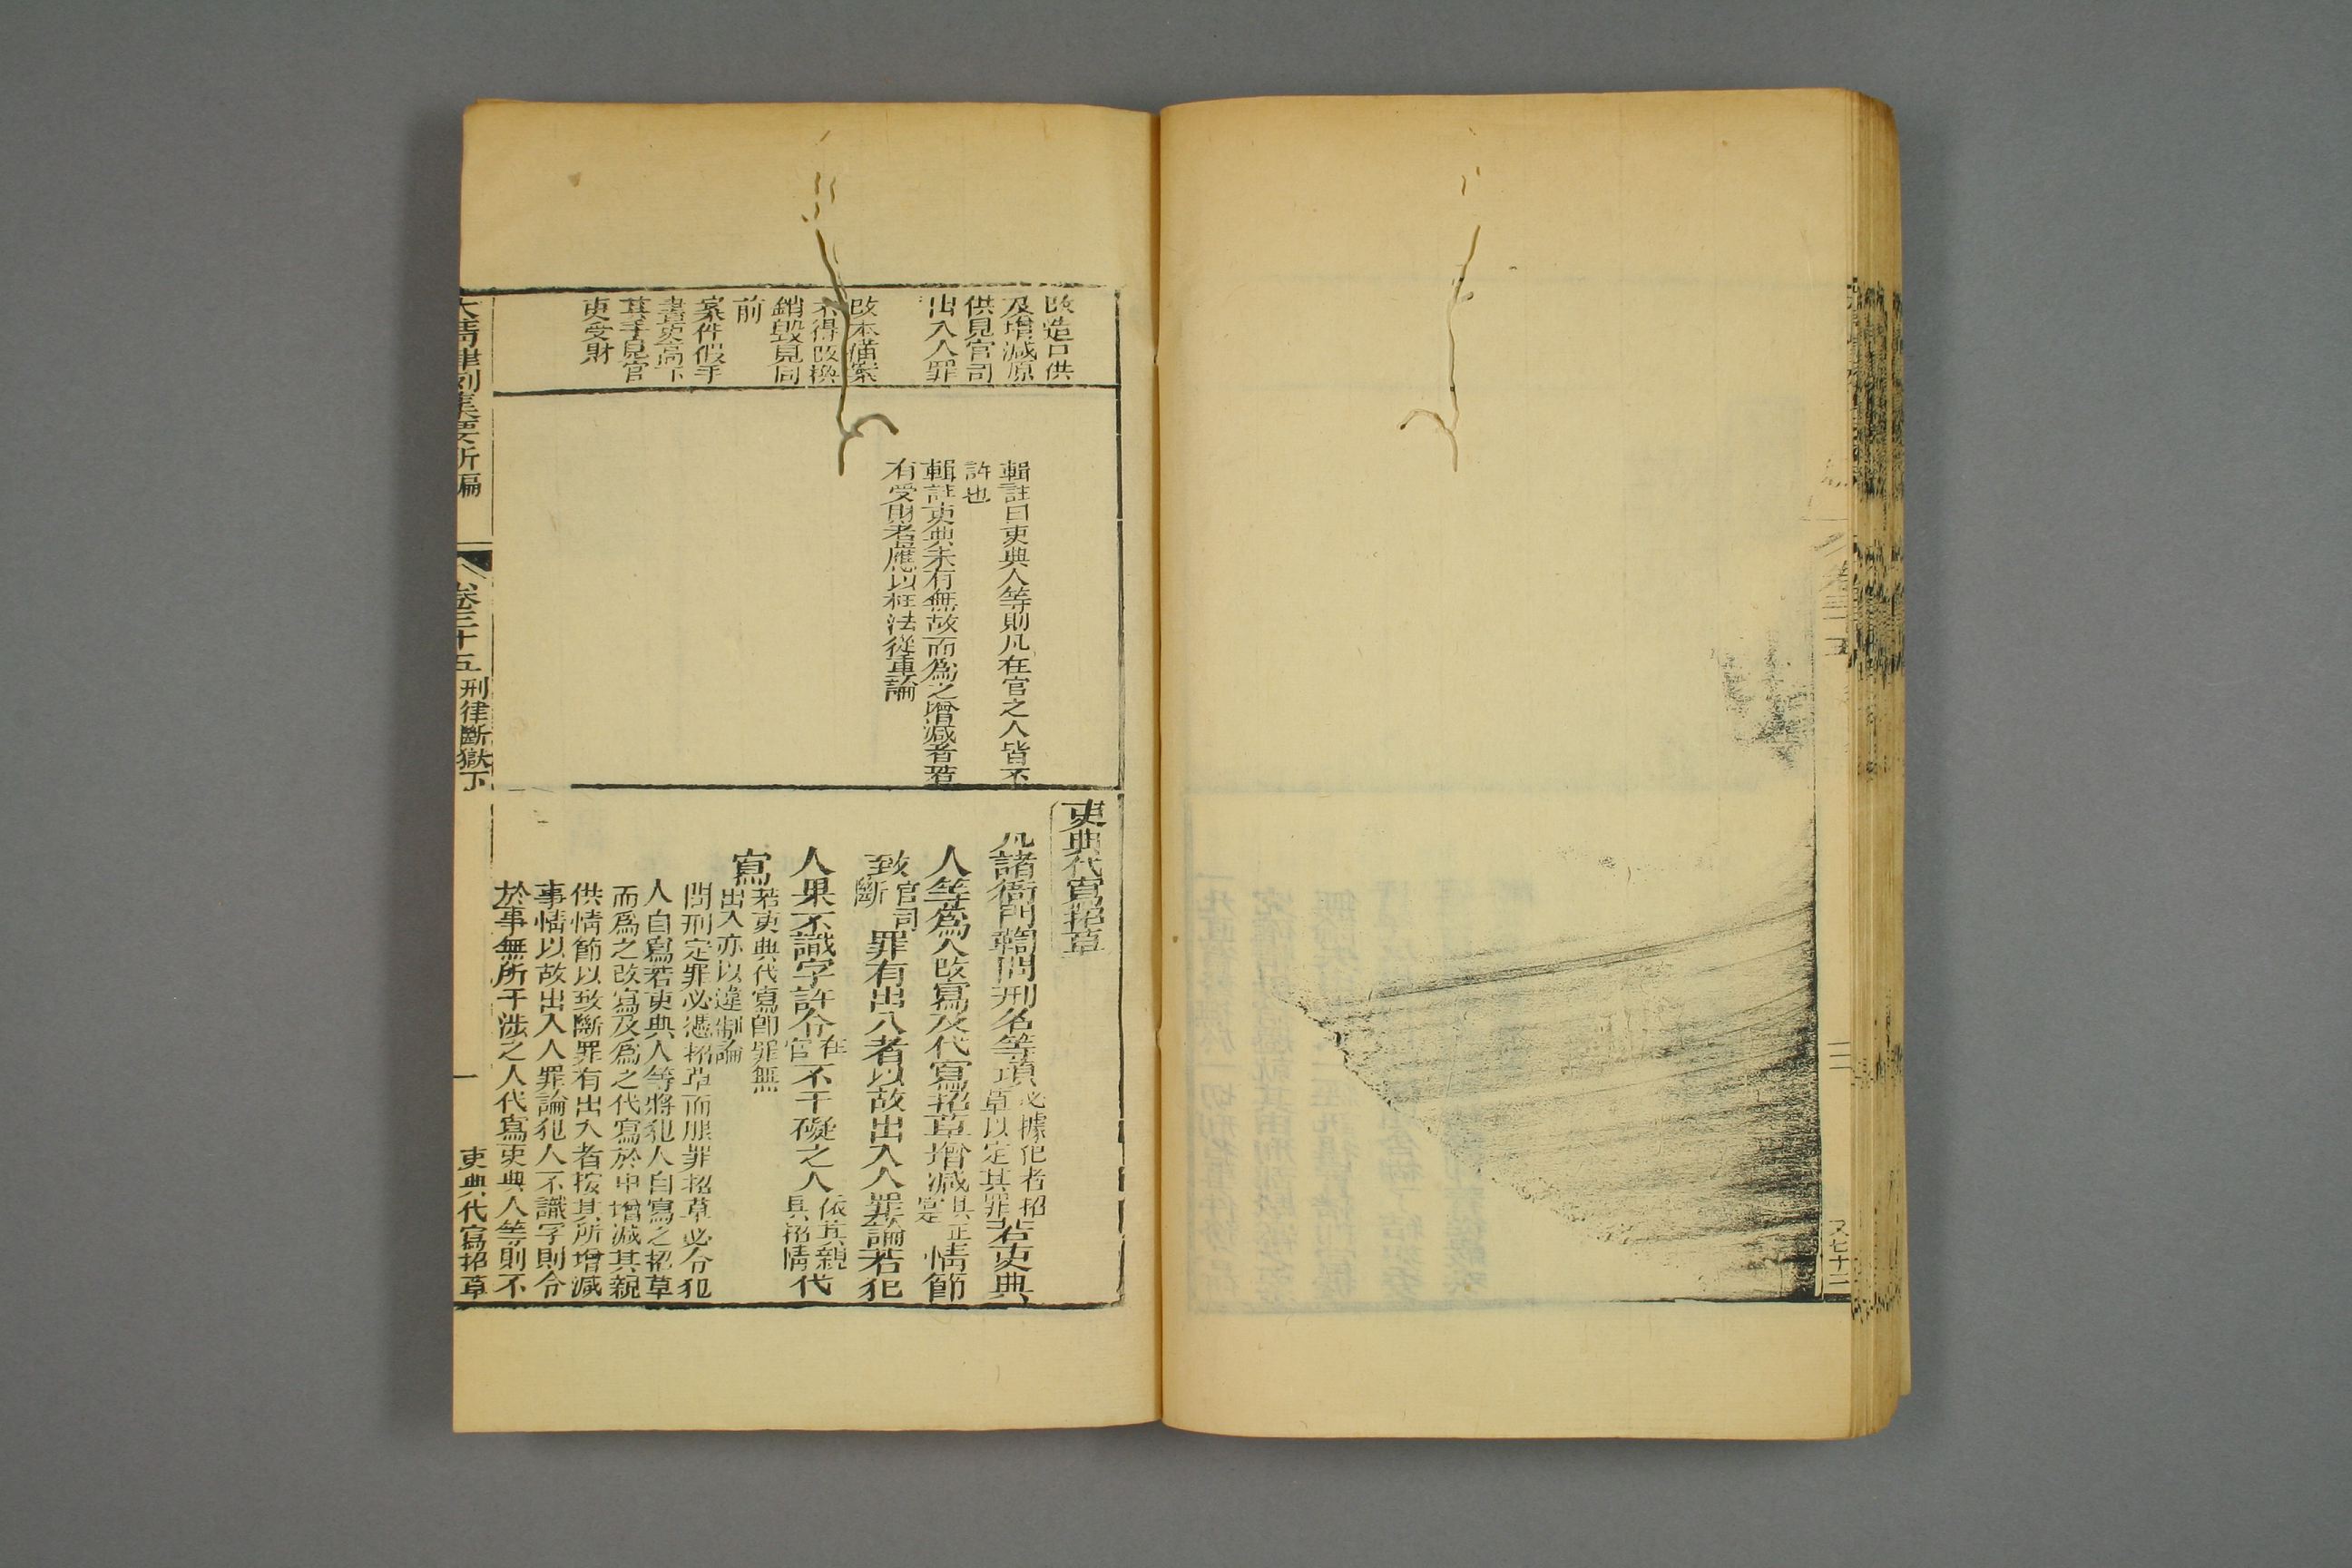 又七十二
改造口供
及增減原
供見官司
出入人罪
改本犯案
不得改換
銷毀見同
前
案件假手
書吏高下
其手見官
吏受財
輯註曰吏典人等則凡在官之人皆不
許也
輯註吏典未有無故而為之增減者若
有受財者應以枉法從重論
吏典代寫招草
凡諸衙門鞫問刑名等項必據犯者招草以定其罪若吏典
人等為人改寫及代寫招草增減其正實情節
致官司斷罪有出入者以故出入人罪論若犯
人果不識字許令在官不干礙之人依其親具招情代
寫若吏典代寫即罪無出入亦以違制論
問刑定罪必憑招草而服罪招草必令犯
人自寫若吏典人等將犯人自寫之招草
而為之改寫及為之代寫於中增減其親
供情節以致斷罪有出入者按其所增減
事情以故出入人罪論犯人不識字則令
於事無所干涉之人代寫吏典人等則不
大清律例集要新編
卷三十五
刑律斷獄下
一
吏典代寫招草